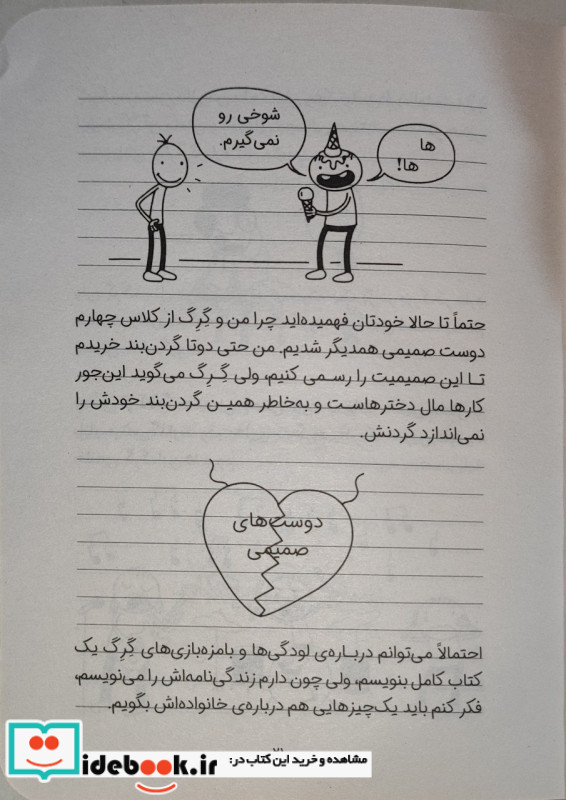 شوخی رو
نمی‌گیرم.
ها
ها!
حتماً تا حالا خودتان فهمیده‌اید چرا من و گِرِگ از کلاس چهارم
دوست صمیمی همدیگر شدیم. من حتی دوتا گردن‌بند خریدم
تـا این صمیمیت را رسـمی کنیم، ولی گِـرِگ می‌گوید این‌جور
کارها مال دخترهاسـت و به‌خاطر همیـن گردن‌بند خودش را
نمی‌اندازد گردنش.
دوست‌های
صمیمی
احتمالاً می‌توانم دربـاره‌ی لودگی‌ها و بامزه‌بازی‌های گِرِگ یک
کتاب کامل بنویسم، ولی چون دارم زندگی‌نامه‌اش را می‌نویسم،
فکر کنم باید یک‌چیزهایی هم درباره‌ی خانواده‌اش بگویم.
مشاهده و خرید این کتاب در:
idebook.ir